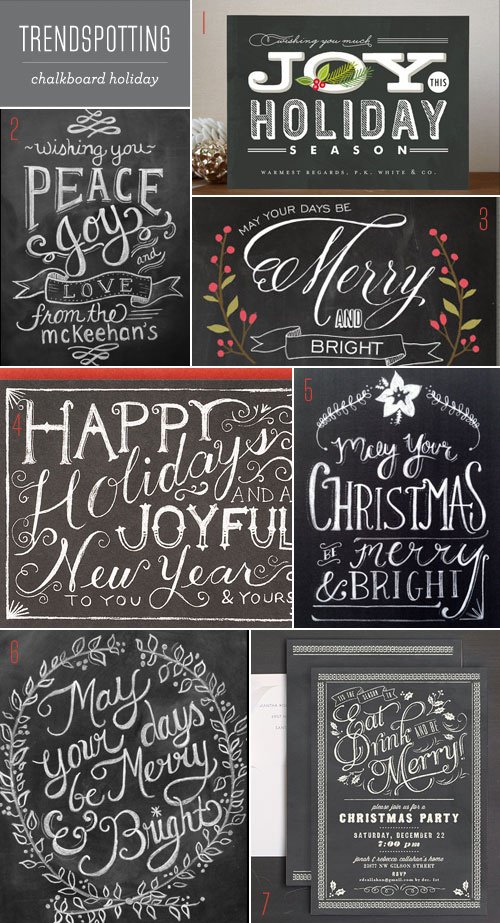 TRENDSPOTTING
chalkboard holiday
1
wishing you much
JOY THIS
HOLIDAY
SEASON
WARMEST REGARDS, P.K. WHITE & CO.
2
wishing you
PEACE
Joy and
LOVE
from the
McKeehan's
3
MAY YOUR DAYS BE
Merry
AND
BRIGHT
4
HAPPY
Holidays
AND A
JOYFUL
New Year
TO YOU & YOURS
5
May Your
CHRISTMAS
BE Merry
& BRIGHT
6
May
your days
be Merry
& Bright
7
'TIS THE SEASON TO
Eat
Drink AND BE
Merry!
please join us for a
CHRISTMAS PARTY
SATURDAY, DECEMBER 22
7:00 pm
jonah & rebecca callahan's home
22977 NW GILSON STREET
RSVP